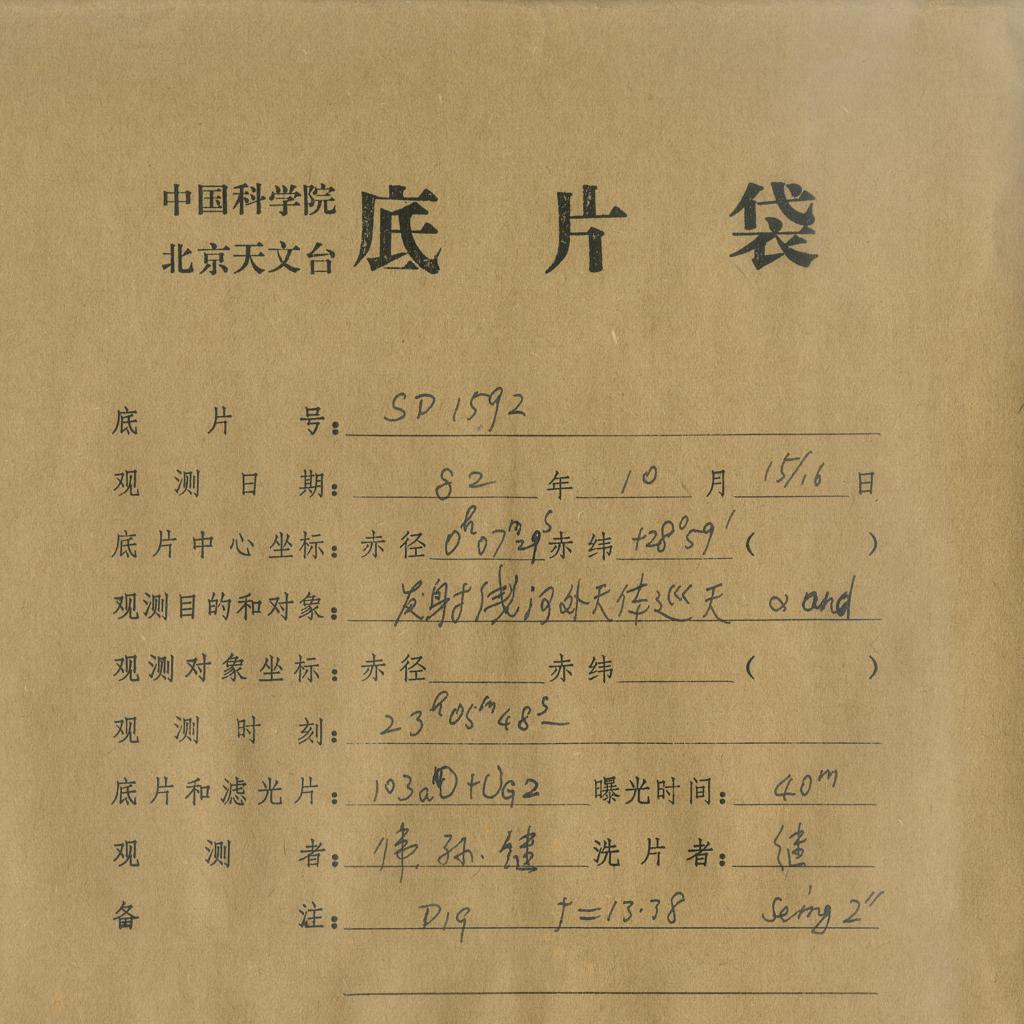 中国科学院
北京天文台
底片袋
底片号：SD 1592
观测日期：82年10月15/16日
底片中心坐标：赤径0h07m29s赤纬+28°59′（ ）
观测目的和对象：发射线河外天体巡天 α and
观测对象坐标：赤径 赤纬 （ ）
观测时刻：23h05m48s
底片和滤光片：103aO+UG2 曝光时间：40m
观测者：伟.孙.继 洗片者：继
备注：D19 t=13.38 Seing 2″